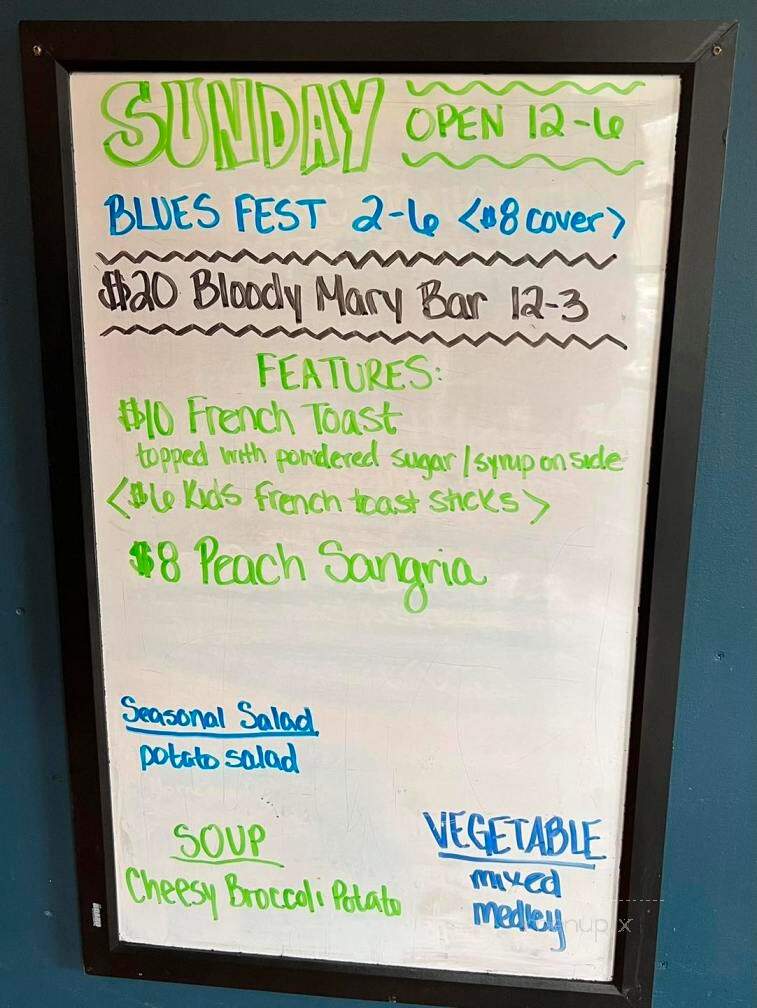 SUNDAY OPEN 12-6
BLUES FEST 2-6 <$8 cover>
$20 Bloody Mary Bar 12-3
FEATURES:
$10 French Toast
topped with powdered sugar / syrup on side
<$6 Kids french toast sticks>
$8 Peach Sangria
Seasonal Salad
potato salad
SOUP
Cheesy Broccoli Potato
VEGETABLE
mixed
medley